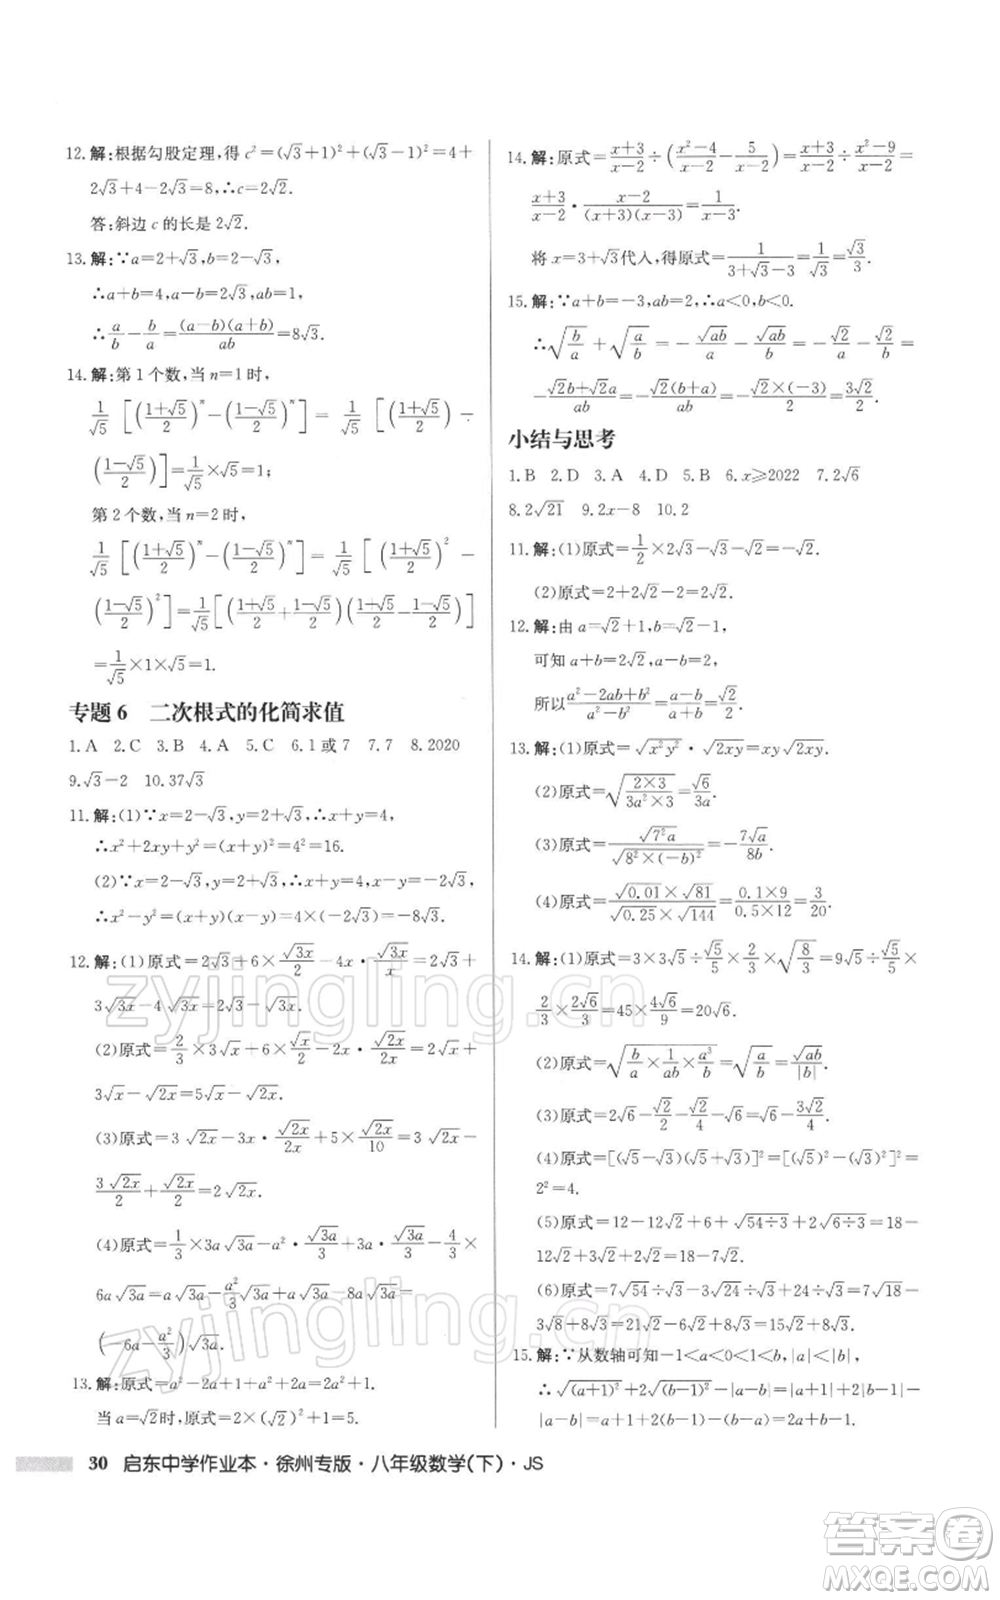 12.解:根据勾股定理,得 c²=(√3+1)²+(√3-1)²=4+
2√3+4-2√3=8,∴c=2√2.
答:斜边 c 的长是 2√2.
13.解:∵a=2+√3,b=2-√3,
∴a+b=4,a-b=2√3,ab=1,
∴a/b-b/a=(a-b)(a+b)/ab=8√3.
14.解:第 1 个数,当 n=1 时,
1/√5[((1+√5)/2)ⁿ-((1-√5)/2)ⁿ]=1/√5[((1+√5)/2)-
((1-√5)/2)]=1/√5×√5=1;
第 2 个数,当 n=2 时,
1/√5[((1+√5)/2)ⁿ-((1-√5)/2)ⁿ]=1/√5[((1+√5)/2)²-
((1-√5)/2)²]=1/√5[((1+√5)/2+(1-√5)/2)((1+√5)/2-(1-√5)/2)]
=1/√5×1×√5=1.
专题 6 二次根式的化简求值
1.A 2.C 3.B 4.A 5.C 6.1或7 7.7 8.2020
9.√3-2 10.37√3
11.解:(1)∵x=2-√3,y=2+√3,∴x+y=4,
∴x²+2xy+y²=(x+y)²=4²=16.
(2)∵x=2-√3,y=2+√3,∴x-y=-2√3,
∴x²-y²=(x+y)(x-y)=4×(-2√3)=-8√3.
12.解:(1)原式=2√3+6×√(3x)/2-4x·√(3x)/x=2√3+
3√(3x)-4√(3x)=2√3-√(3x).
(2)原式=2/3×3√x+6×√x/2-2x·√(2x)/2x=2√x+
3√x-√(2x)=5√x-√(2x).
(3)原式=3√(2x)-6x·√(2x)/2x+5×√(2x)/10=2√(2x)-
3√(2x)/2+√(2x)/2=2√(2x).
(4)原式=1/3×3a√(3a)-a²·√(3a)/3+3a·√(3a)/3-4/3×
6a√(3a)=a√(3a)-a²/3√(3a)+a√(3a)-8a√(3a)=
(-6a-a²/3)√(3a).
13.解:原式=a²-2a+1+a²+2a=2a²+1.
当 a=√2时,原式=2×(√2)²+1=5.
14.解:原式=(x+3)/(x-2)÷((x²-4)/(x-2)-5/(x-2))=(x+3)/(x-2)÷(x²-9)/(x-2)=
(x+3)/(x-2)·(x-2)/((x+3)(x-3))=1/(x-3).
将 x=3+√3代入,原式=1/(3+√3-3)=1/√3=√3/3.
15.解:∵a+b=-3,ab=2,∴a<0,b<0.
∴√(b/a)+√(a/b)=-√(ab)/a-√(ab)/b=-√2/a-√2/b=
-(√2b+√2a)/ab=-√2(b+a)/ab=-√2×(-3)/2=3√2/2.
小结与思考
1.B 2.D 3.A 4.D 5.B 6.x≥2022 7.2√6
8.2√21 9.2x-8 10.2
11.解:(1)原式=1/2×2√3-√3-√2=-√2.
(2)原式=2√2+2-2=2√2.
12.解:由 a=√2+1,b=√2-1,
可知 a+b=2√2,a-b=2,
所以(a²-2ab+b²)/(a²-b²)=(a-b)/(a+b)=√2/2.
13.解:(1)原式=√(x²y²)·√(2xy)=xy√(2xy).
(2)原式=√(2×3/3a²×3)=√6/3a.
(3)原式=√(7²a)/√(8²×(-b)²)=-7√a/8b.
(4)原式=√0.01×√81/√0.25×√144=0.1×9/0.5×12=3/20.
14.解:(1)原式=3×3√5×√5/5×2/3×√(8/3)=9√5×√5/5×
2/3×2√6/3=45×4√6/9=20√6.
(2)原式=√(b/a×1/ab×a³/b)=√(a/b)=√(ab)/|b|.
(3)原式=2√6-√2/2-√2/4-√6=√6-3√2/4.
(4)原式=[(√5-√3)(√5+√3)]²=[(√5)²-(√3)²]²=
2²=4.
(5)原式=12-12√2+6+√(54÷3)+2√(6÷3)=18-
12√2+3√2+2√2=18-7√2.
(6)原式=7√54÷√3-3√24÷√3+4√12÷√3=
7√18-3√8+8√3=21√2-6√2+8√3=15√2+8√3.
15.解:∵从数轴可知-1<a<0<1<b,|a|<|b|,
∴√(a+1)²+2√(b-1)²-|a-b|=|a+1|+2|b-1|-
30 启东中学作业本·徐州专版·八年级数学(下)·JS
zyjingling.cn
zyjingling.cn
答案卷
MXQE.COM